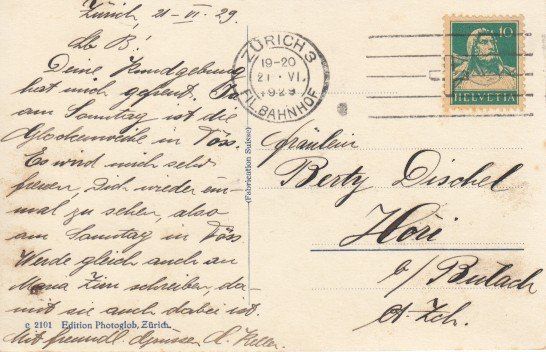 Zürich, 21-VI.29
Lb B!
Deine Kundgebung
hat mich gefreut. Ja
am Sonntag ist die
Glockenweihe in Töss.
Es wird mich sehr
freuen, Dich wieder ein-
mal zu sehen, also
am Sonntag in Töss
Werde gleich auch an
Maria schreiben, da-
mit sie auch dabei ist.
Mit freundl Grüssen A. Keller.
c 2101 Edition Photoglob, Zürich.
(Fabrication Suisse)
ZÜRICH 3
19-20
21. VI.
1929
FIL. BAHNHOF
10
HELVETIA
Fräulein
Berty Dischel
Höri
b/ Bülach
Ct. Zch.